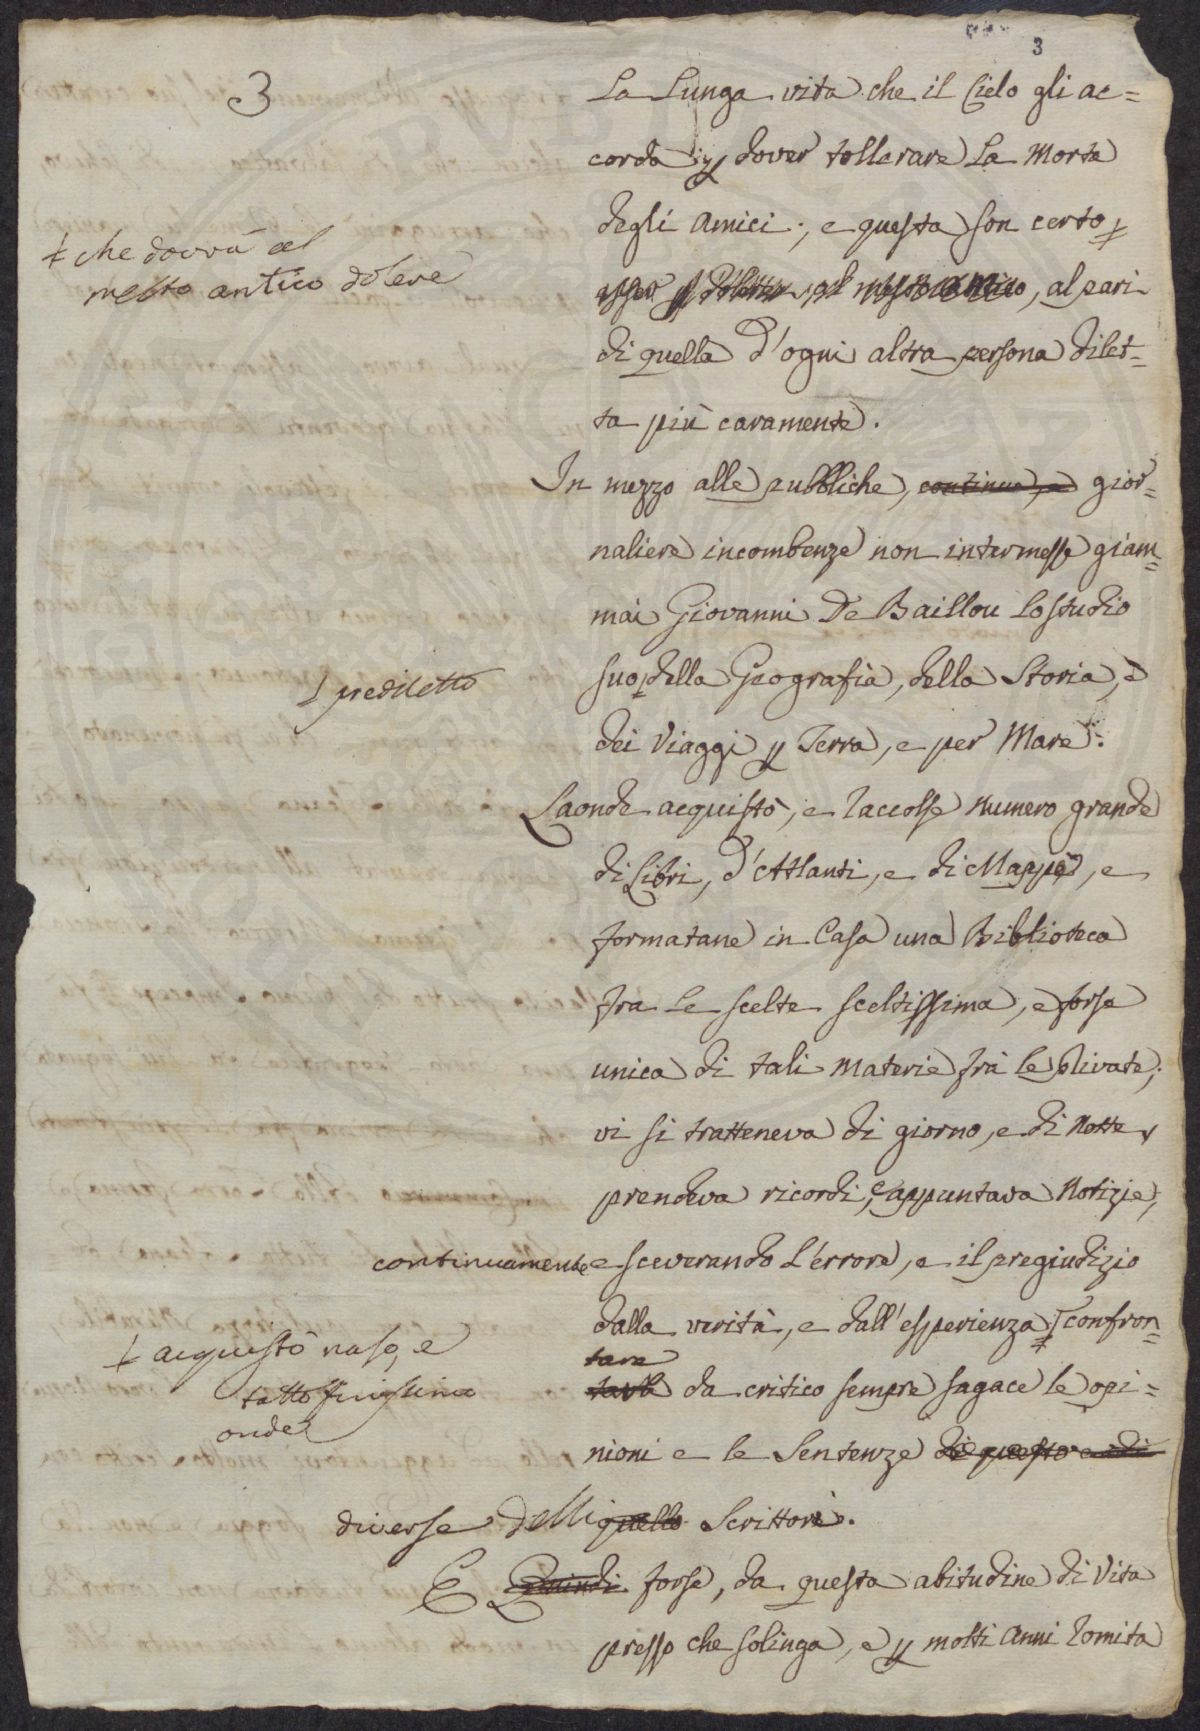 3
3
La Lunga vita che il Cielo gli ac=
corda dover tollerare La Morte
degli Amici; e questa son certo
che dovrà al
mesto antico dolere
al pari
di quella d'ogni altra persona dilet=
ta più caramente.
In mezzo alle pubbliche, continue, e gior=
naliere incombenze non intermesse giam=
mai Giovanni De Baillou lo studio
prediletto
suo della Geografia, della Storia, e
dei Viaggi p Terra, e per Mare.
Laonde acquistò, e raccolse Numero grande
di Libri, d'Atlanti, e di Mappe, e
formatane in Casa una Biblioteca
fra le scelte sceltissima, e forse
unica di tali Materie frà le private;
vi si tratteneva di giorno, e di Notte
prendeva ricordi, e appuntava Notizie;
continuamente e sceverando L'errore, e il pregiudizio
dalla verità, e dall'esperienza confron=
acquistò naso, e
tatto finissimo
onde
tare
da critico sempre sagace le opi=
nioni e le Sentenze di questo e di
diverse delli quello Scrittori.
E Quindi forse, da questa abitudine di Vita
presso che solinga, e p molti Anni romita